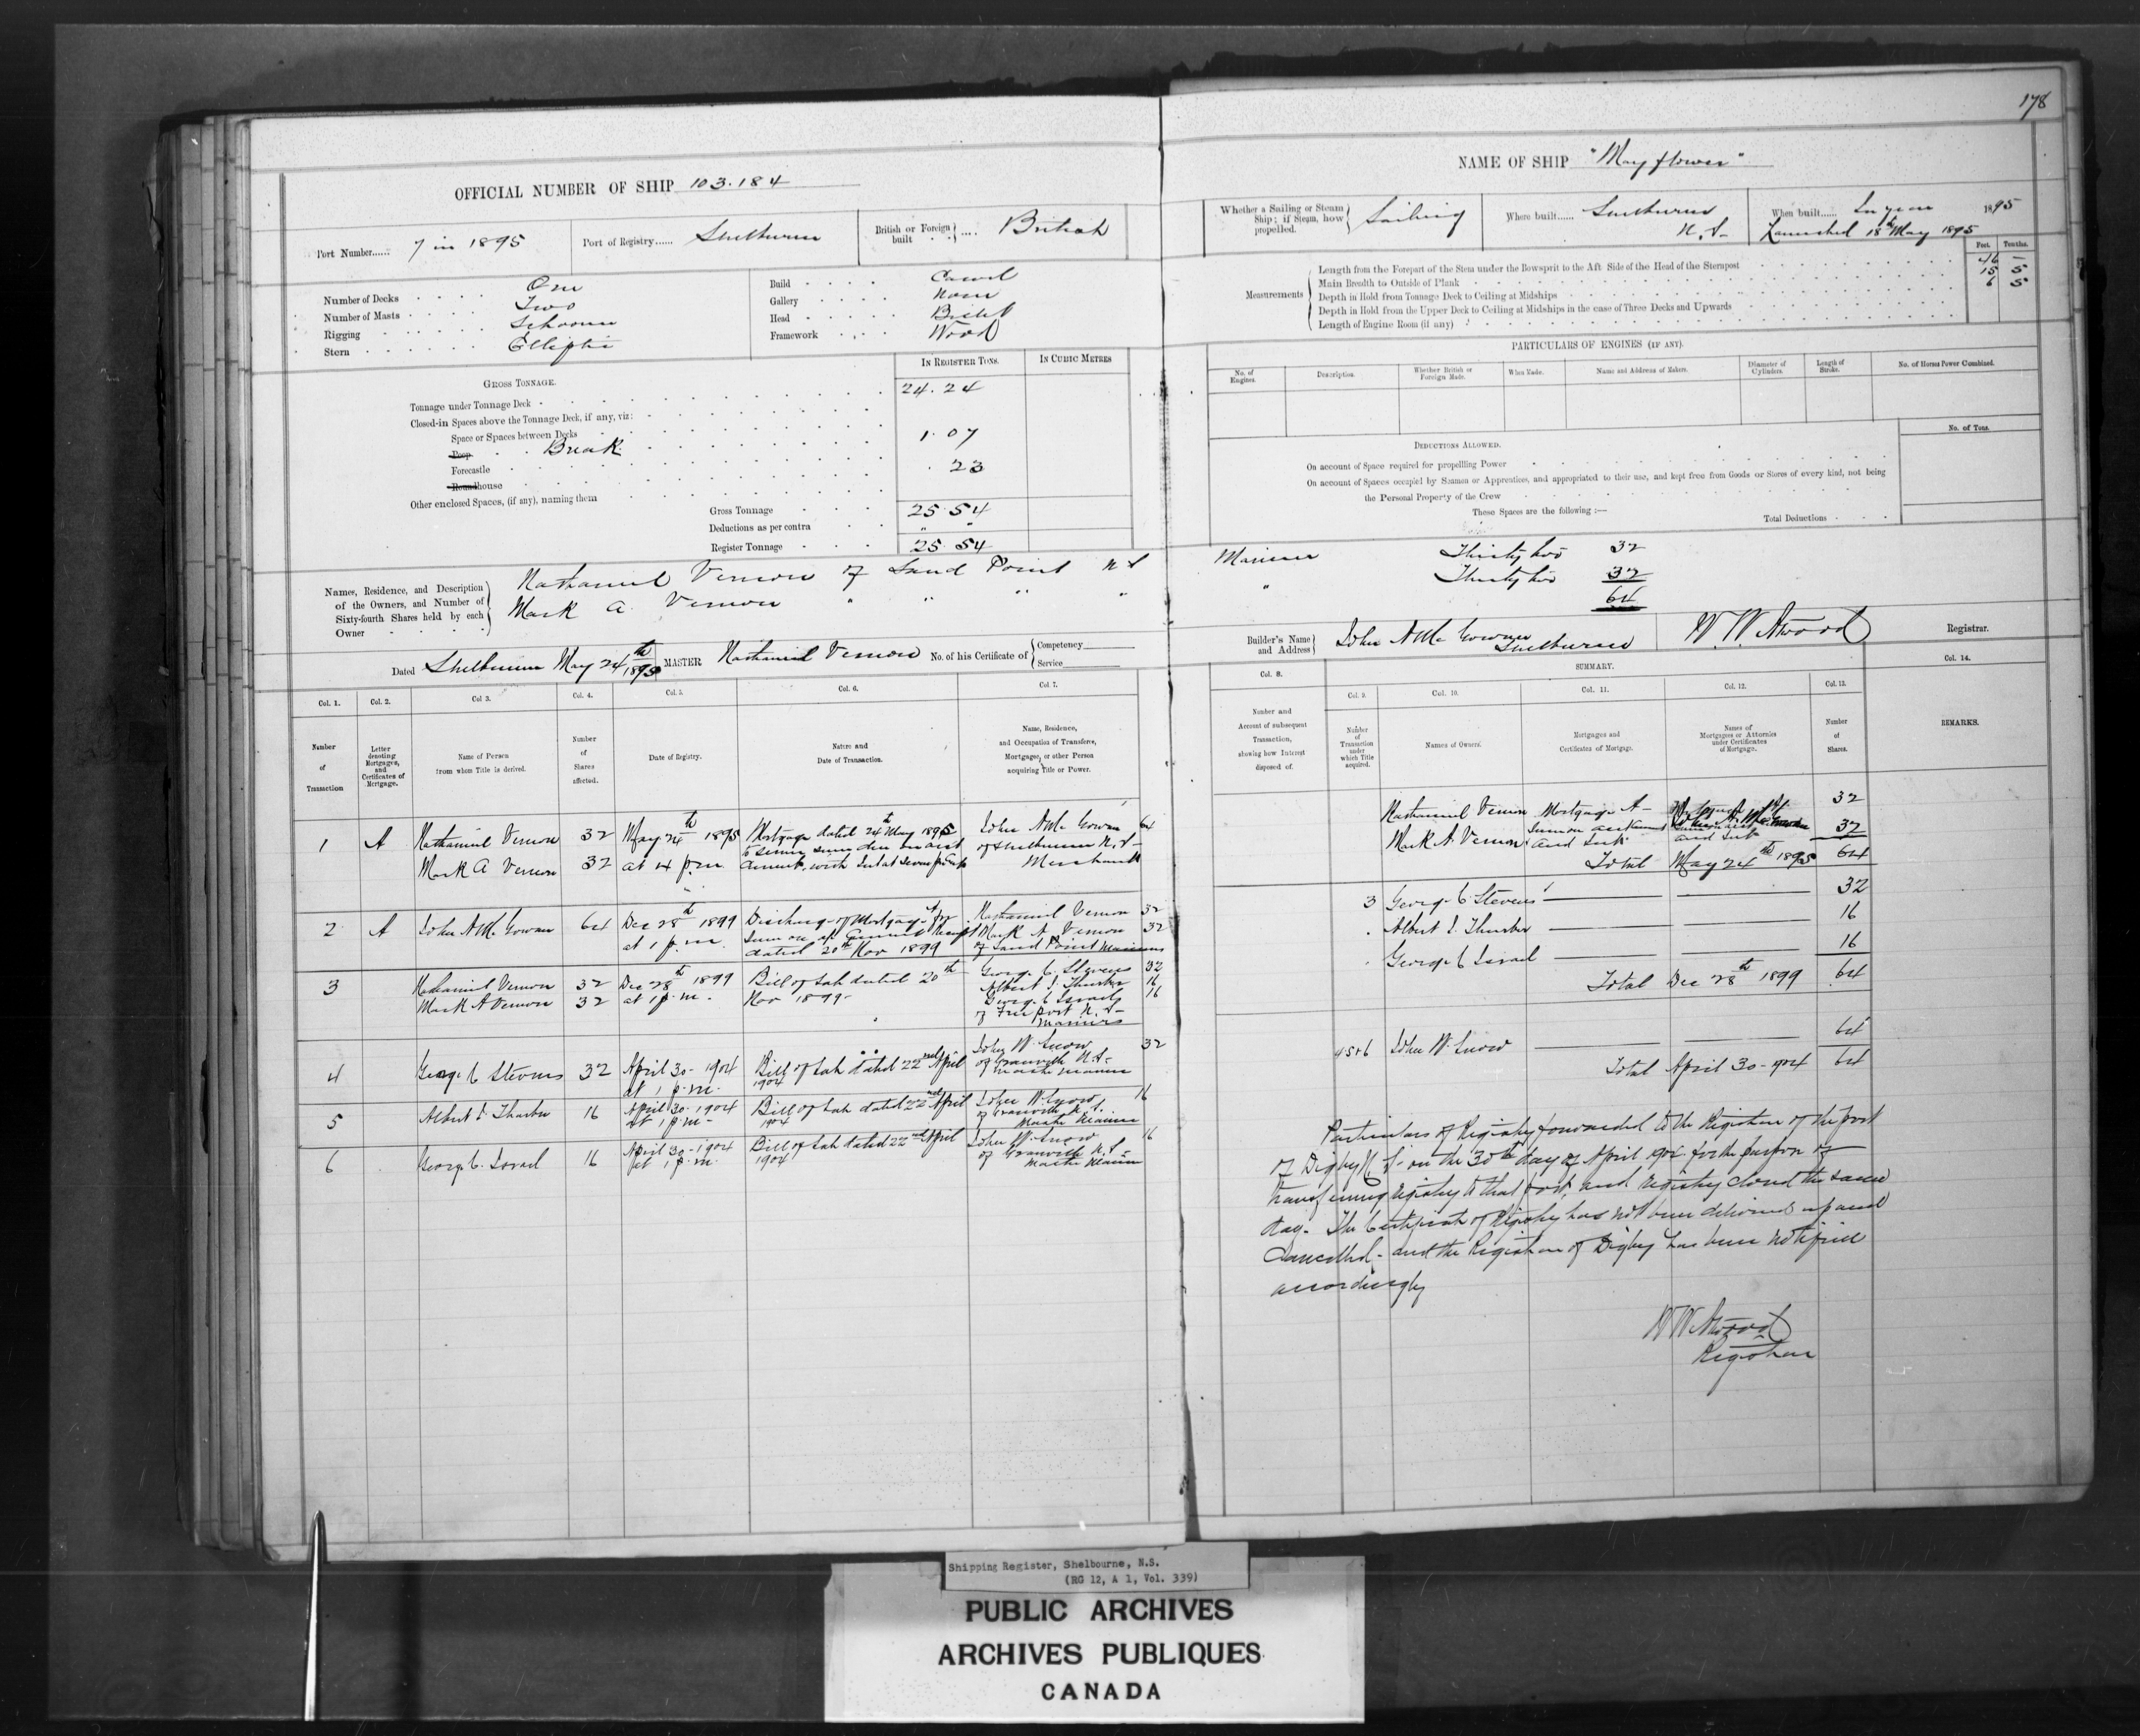 178
OFFICIAL NUMBER OF SHIP 103.184
Port Number...... 7 in 1895
Port of Registry...... Shelburne
British or Foreign built .... British
Number of Decks One
Number of Masts Two
Rigging Schooner
Stern Elliptic
Build Carvel
Gallery None
Head Billet
Framework Wood
IN REGISTER TONS.
IN CUBIC METRES
GROSS TONNAGE.
Tonnage under Tonnage Deck 24.24
Closed-in Spaces above the Tonnage Deck, if any, viz:
Space or Spaces between Decks
Poop Break 1.07
Forecastle .23
Roundhouse
Other enclosed Spaces, (if any), naming them
Gross Tonnage 25.54
Deductions as per contra " "
Register Tonnage 25.54
Names, Residence, and Description of the Owners, and Number of Sixty-fourth Shares held by each Owner
Nathaniel Vernon of Sand Point N S
Mark A. Vernon " " " "
Dated Shelburne May 24th 1895 MASTER Nathaniel Vernon No. of his Certificate of Competency Service
Col. 1. Col. 2. Col 3. Col. 4. Col. 5. Col. 6. Col. 7.
Number of Transaction
Letter denoting Mortgages, and Certificates of Mortgage.
Name of Person from whom Title is derived.
Number of Shares affected.
Date of Registry.
Nature and Date of Transaction.
Name, Residence, and Occupation of Transferee, Mortgagee, or other Person acquiring Title or Power.
1 A Nathaniel Vernon 32 May 24th 1895 Mortgage dated 24th May 1895 John A McGowan 64
Mark A Vernon 32 at 4 p.m. of Shelburne N.S.
Merchant
2 A John A McGowan 64 Dec 28th 1899 Discharge of Mortgage A for Nathaniel Vernon 32
at 1 p.m. Mark A Vernon 32
dated 20th Nov 1899 of Sand Point Mariners
3 Nathaniel Vernon 32 Dec 28th 1899 Bill of Sale dated 20th George C. Stevens 32
Mark A Vernon 32 at 1 p.m. Nov 1899 Albert I. Thurber 16
George C Israel 16
of Freeport N.S.
Mariners
4 George C Stevens 32 April 30 - 1904 Bill of Sale dated 22nd April John W. Snow 32
at 1 p.m. 1904 of Granville N.S.
Master Mariner
5 Albert I. Thurber 16 April 30 - 1904 Bill of Sale dated 22nd April John W. Snow 16
at 1 p.m. 1904 of Granville N.S.
Master Mariner
6 George C. Israel 16 April 30 - 1904 Bill of Sale dated 22nd April John W. Snow 16
at 1 p.m. 1904 of Granville N.S.
Master Mariner
NAME OF SHIP "Mayflower"
Whether a Sailing or Steam Ship; if Steam, how propelled. Sailing
Where built...... Shelburne N.S.
When built...... In year 1895
Launched 18th May 1895
Feet. Tenths.
Measurements
Length from the Forepart of the Stem under the Bowsprit to the Aft Side of the Head of the Sternpost 46 -
Main Breadth to Outside of Plank 15 5
Depth in Hold from Tonnage Deck to Ceiling at Midships 6 5
Depth in Hold from the Upper Deck to Ceiling at Midships in the case of Three Decks and Upwards
Length of Engine Room (if any)
PARTICULARS OF ENGINES (IF ANY).
No. of Engines.
Description.
Whether British or Foreign Made.
When Made.
Name and Address of Makers.
Diameter of Cylinders.
Length of Stroke.
No. of Horses Power Combined.
DEDUCTIONS ALLOWED.
No. of Tons.
On account of Space required for propelling Power
On account of Spaces occupied by Seamen or Apprentices, and appropriated to their use, and kept free from Goods or Stores of every kind, not being
the Personal Property of the Crew
These Spaces are the following :—
Total Deductions
Mariner Thirty two 32
" Thirty two 32
64
Builder's Name and Address John A McGowan Shelburne
W. W. Atwood Registrar.
Col. 8. SUMMARY. Col. 14.
Col. 9. Col. 10. Col. 11. Col. 12. Col. 13.
Number and Account of subsequent Transaction, showing how Interest disposed of.
Number of Transaction under which Title acquired.
Names of Owners.
Mortgages and Certificates of Mortgage.
Names of Mortgagees or Attornies under Certificates of Mortgage.
Number of Shares.
REMARKS.
Nathaniel Vernon Mortgage A 32
Mark A. Vernon 32
Total May 24th 1895 64
3 George C. Stevens 32
" Albert I. Thurber 16
" George C Israel 16
Total Dec 28th 1899 64
4 5 + 6 John W. Snow 64
Total April 30 - 1904 64
Particulars of Registry forwarded to the Registrar of the port
of Digby N.S. on the 30th day of April 1904 for the purpose of
transferring registry to that port, and registry closed the same
day. The Certificate of Registry has not been delivered up and
Cancelled - and the Registrar of Digby has been notified
accordingly
W W Atwood
Registrar
Shipping Register, Shelbourne, N.S.
(RG 12, A 1, Vol. 339)
PUBLIC ARCHIVES
ARCHIVES PUBLIQUES
CANADA